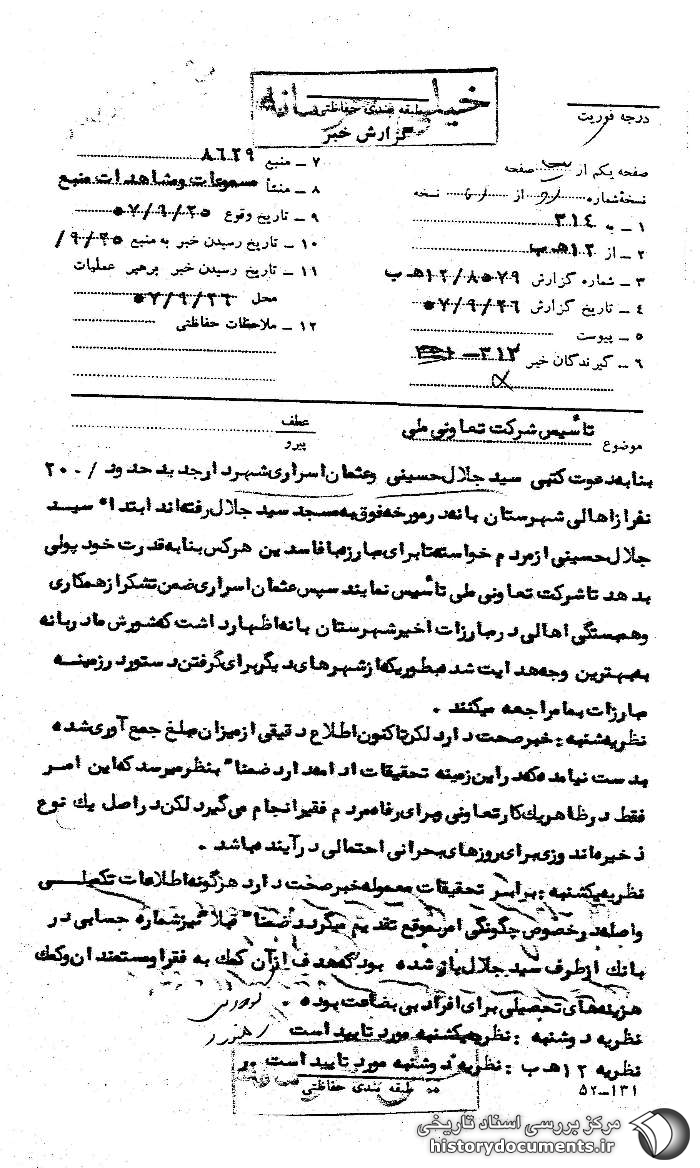 خیلی محرمانه
طبقه بندی حفاظتی
گزارش خبر
درجه فوریت
صفحه یکم از یک صفحه
نسخهٔ شماره از نسخه
۱ ــ به ۳۱۴
۲ ــ از ۱۲ ه‍ ب
۳ ــ شماره گزارش ۱۲/۸۵۷۹ ه‍ ب
۴ ــ تاریخ گزارش ۵۷/۹/۲۶
۵ ــ پیوست
۶ ــ گیرندگان خبر ۳۱۲ ــ
۷ ــ منبع ۸۶۲۹
۸ ــ منشأ مسموعات و مشاهدات منبع
۹ ــ تاریخ وقوع ۵۷/۹/۲۵
۱۰ ــ تاریخ رسیدن خبر به منبع ۹/۲۵/
۱۱ ــ تاریخ رسیدن خبر برهبر عملیات
محل ۵۷/۹/۲۶
۱۲ ــ ملاحظات حفاظتی
موضوع تأسیس شرکت تعاونی ملی
عطف
پیرو
بنا به دعوت کتبی سید جلال حسینی و عثمان اسراری شهردار جدید حدود /۲۰۰
نفر از اهالی شهرستان بانه در مورخه فوق به مسجد سید جلال رفته‌اند ابتدا سید
جلال حسینی از مردم خواسته تا برای مبارزه با فاسدین هرکس بنا به قدرت خود پولی
بدهد تا شرکت تعاونی ملی تأسیس نمایند سپس عثمان اسراری ضمن تشکر از همکاری
و همبستگی اهالی در مبارزات اخیر شهرستان بانه اظهار داشت که شورش ما در بانه
به بهترین وجه هدایت شد بطوریکه از شهرهای دیگر برای گرفتن دستور در زمینه
مبارزات بما مراجعه میکنند .
نظریه شنبه : خبر صحت دارد لکن تاکنون اطلاع دقیقی از میزان مبلغ جمع آوری شده
بدست نیامده که در این زمینه تحقیقات ادامه دارد ضمناً بنظر میرسد که این امر
فقط در ظاهر یک کار تعاونی و برای رفاه مردم فقیر انجام می گیرد لکن در اصل یک نوع
ذخیره اندوزی برای روزهای بحرانی احتمالی در آینده میباشد .
نظریه یکشنبه : برابر تحقیقات معموله خبر صحت دارد هرگونه اطلاعات تکمیلی
واصله در خصوص چگونگی امر بموقع تقدیم میگردد ضمناً قبلاً نیز شماره حسابی در
بانک از طرف سید جلال باز شده بود که هدف از آن کمک به فقرا و مستمندان و کمک
هزینه های تحصیلی برای افراد بی بضاعت بوده .
نظریه دوشنبه : نظریه یکشنبه مورد تایید است
نظریه ۱۲ ه‍ ب : نظریه دوشنبه مورد تایید است
طبقه بندی حفاظتی
۵۲ــ۱۳۱
مرکز بررسی اسناد تاریخی
historydocuments.ir